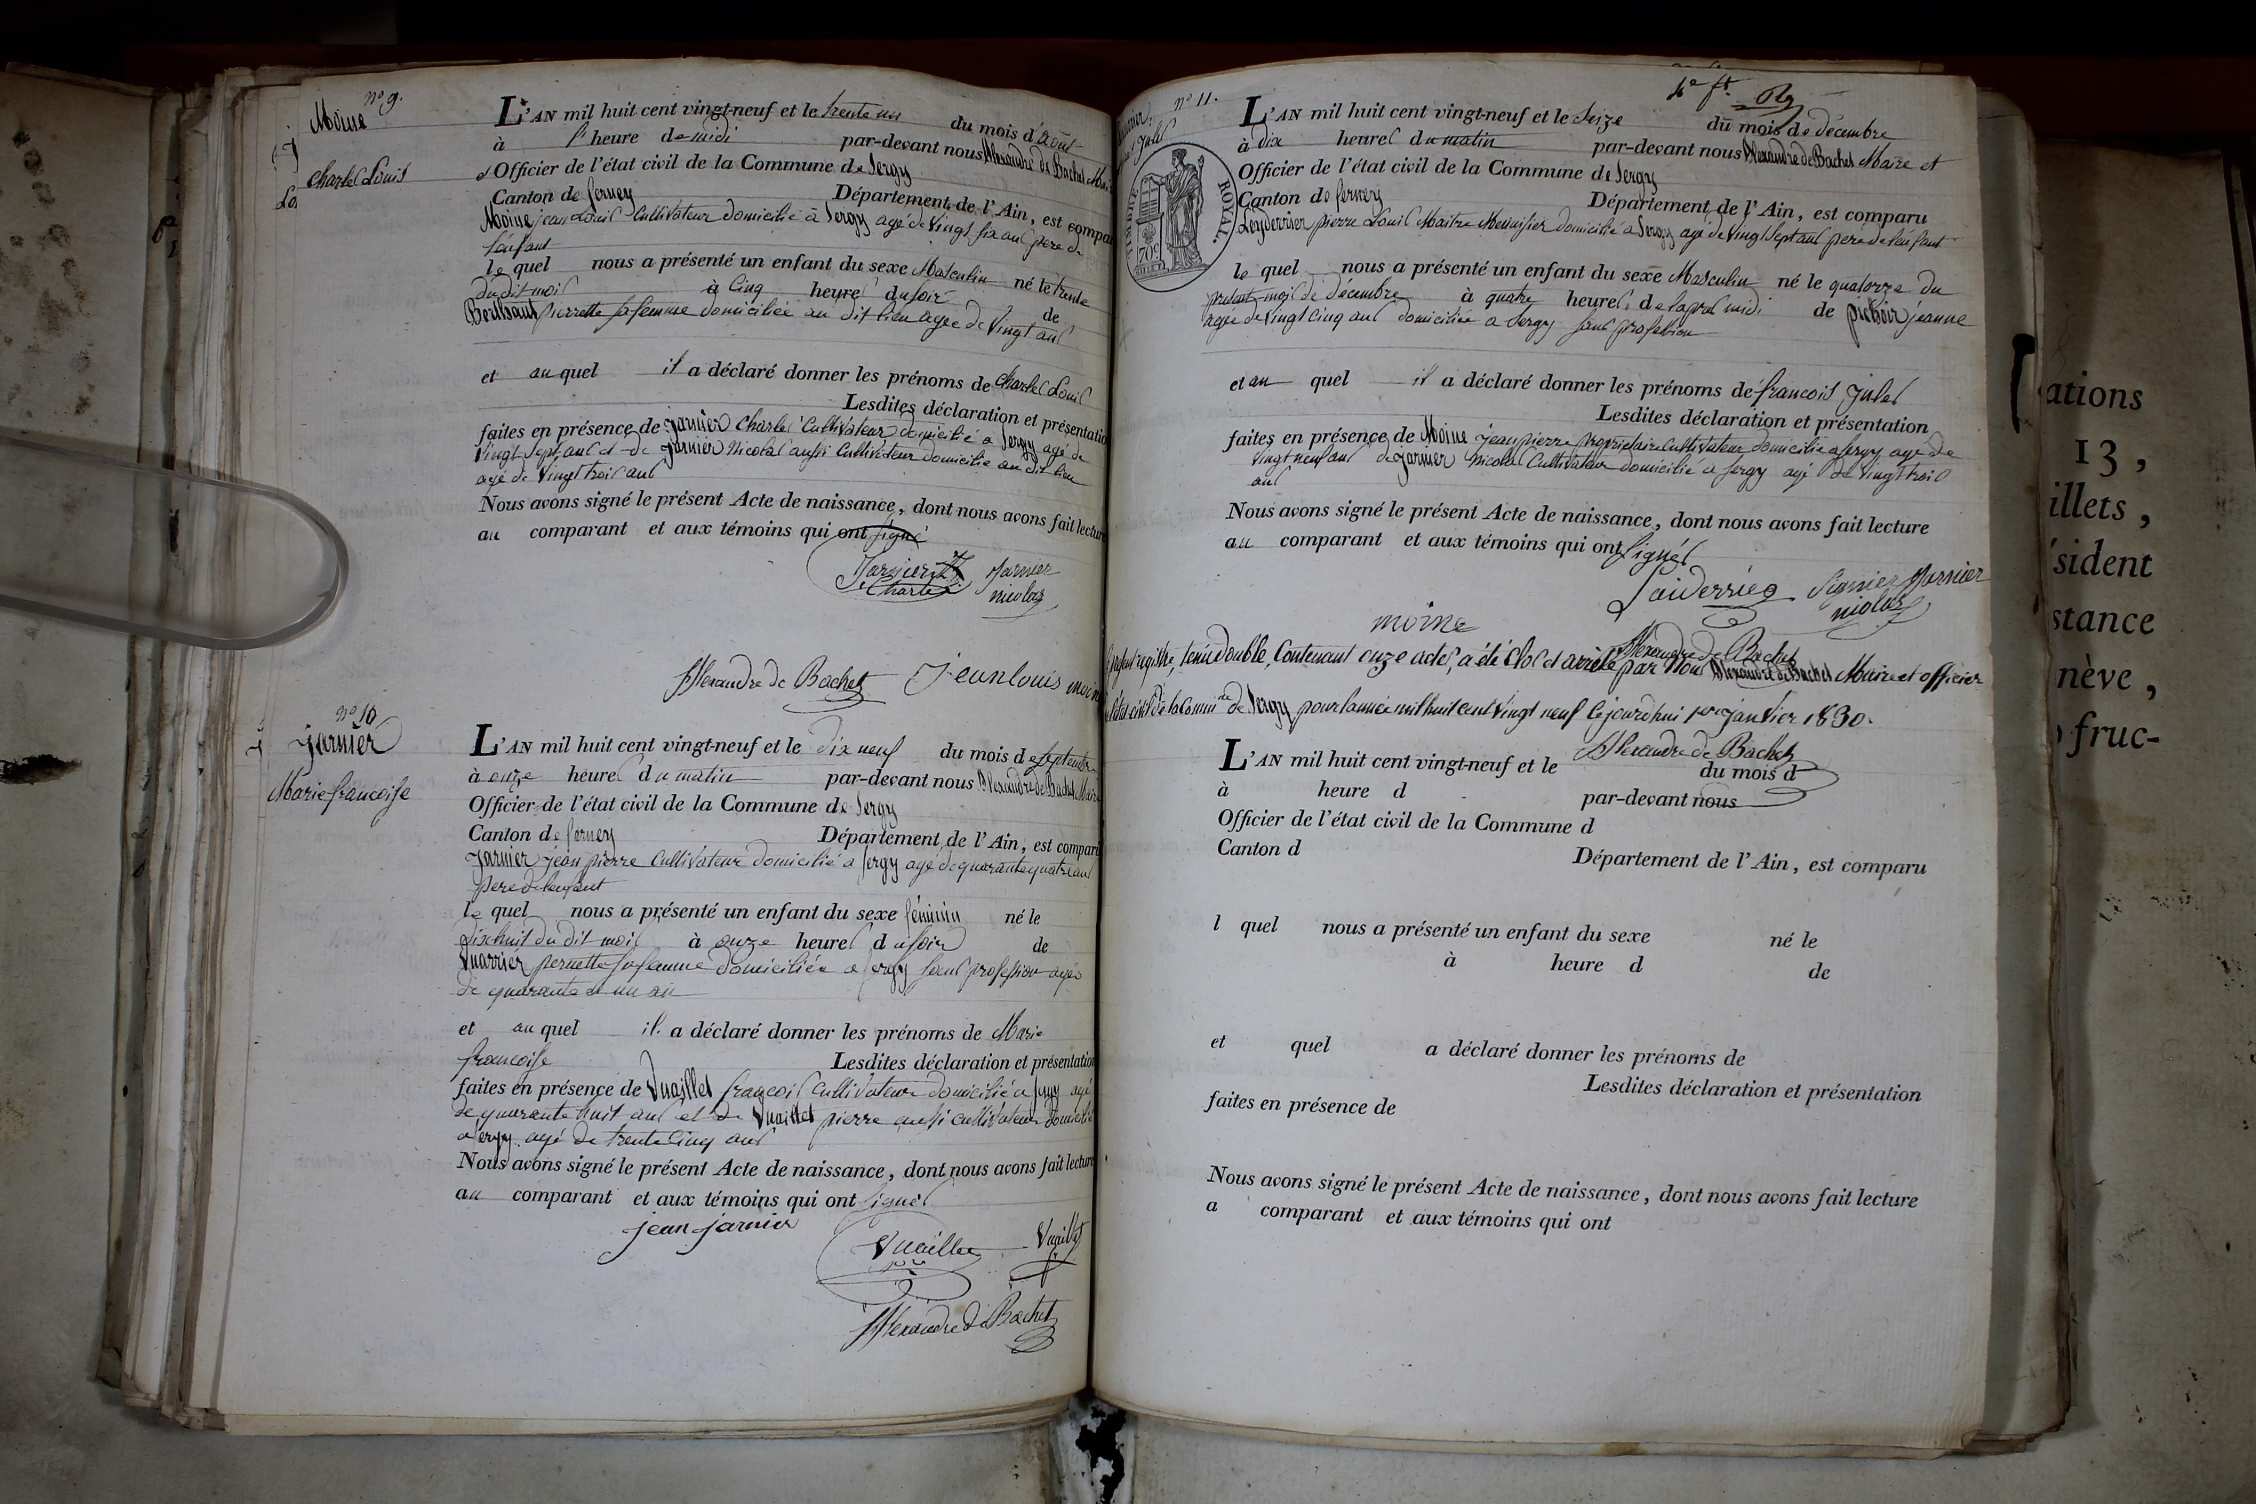 nº 9.
Moine
Charles Louis
L'AN mil huit cent vingt-neuf et le trente un du mois d'août
à heure de midi par-devant nous Alexandre de Bachet Maire
et Officier de l'état civil de la Commune de Sergy
Canton de ferney Département de l'Ain, est comparu
Moine jean Louis Cultivateur domicilié à Sergy agé de vingt six ans pere de
l'enfant
le quel nous a présenté un enfant du sexe Masculin né le trente
du dit mois à Cinq heures du soir de
pierrette sa femme domiciliée au dit lieu agée de vingt ans
et au quel il a déclaré donner les prénoms de Charles Louis
Lesdites déclaration et présentation
faites en présence de jarnier Charles Cultivateur domicilié a Sergy agé de
vingt sept ans et de jarnier Nicolas aussi Cultivateur domicilié au dit lieu
agé de vingt trois ans
Nous avons signé le présent Acte de naissance, dont nous avons fait lecture
au comparant et aux témoins qui ont signé
Jarnier Charles Jarnier nicolas
Alexandre de Bachet Jean louis moine
nº 10
jarnier
Marie françoise
L'AN mil huit cent vingt-neuf et le dix neuf du mois de septembre
à onze heures du matin par-devant nous Alexandre de Bachet Maire
Officier de l'état civil de la Commune de Sergy
Canton de ferney Département de l'Ain, est comparu
Jarnier jean pierre Cultivateur domicilié a Sergy agé de quarante quatre ans
pere de l'enfant
le quel nous a présenté un enfant du sexe féminin né le
dix huit du dit mois à onze heures du soir de
pernette sa femme domiciliée a Sergy sans profession agée
de quarante et un an
et au quel il a déclaré donner les prénoms de Marie
françoise Lesdites déclaration et présentation
faites en présence de Vuaillet françois Cultivateur domicilié a Sergy agé
de quarante huit ans et de Vuaillet pierre aussi cultivateur domicilié
a Sergy agé de trente Cinq ans
Nous avons signé le présent Acte de naissance, dont nous avons fait lecture
au comparant et aux témoins qui ont signés
jean jarnier
Vuaillet Vuaillet
Alexandre de Bachet
nº 11.
TIMBRE ROYAL.
70c
L'AN mil huit cent vingt-neuf et le Seize du mois de décembre
à dix heures du matin par-devant nous Alexandre de Bachet Maire et
Officier de l'état civil de la Commune de Sergy
Canton de ferney Département de l'Ain, est comparu
Leyderrier pierre Louis Maitre Menuisier domicilié a Sergy agé de vingt Sept ans pere de l'enfant
le quel nous a présenté un enfant du sexe Masculin né le quatorze du
présent mois de décembre à quatre heures de l'après midi de pichoir jeanne
agée de vingt Cinq ans domiciliée a Sergy sans profession
et au quel il a déclaré donner les prénoms de françois jules
Lesdites déclaration et présentation
faites en présence de Moine jean pierre propriétaire Cultivateur domicilié a Sergy agé de
vingt neuf ans de jarnier Nicolas Cultivateur domicilié a Sergy agé de vingt trois
ans
Nous avons signé le présent Acte de naissance, dont nous avons fait lecture
au comparant et aux témoins qui ont signés
Laiderrier Jarnier nicolas
moine
Alexandre de Bachet
présent registre, tenu double, Contenant onze actes, a été Clos et arrêté par Nous Alexandre de Bachet Maire et officier
l'état civil de la Comm.ne de Sergy pour l'année mil huit cent vingt neuf Ce jourd'hui 1er janvier 1830.
Alexandre de Bachet
L'AN mil huit cent vingt-neuf et le du mois d
à heure d par-devant nous
Officier de l'état civil de la Commune d
Canton d Département de l'Ain, est comparu
l quel nous a présenté un enfant du sexe né le
à heure d de
et quel a déclaré donner les prénoms de
Lesdites déclaration et présentation
faites en présence de
Nous avons signé le présent Acte de naissance, dont nous avons fait lecture
a comparant et aux témoins qui ont
ations
13,
illets,
sident
stance
nève,
fruc-